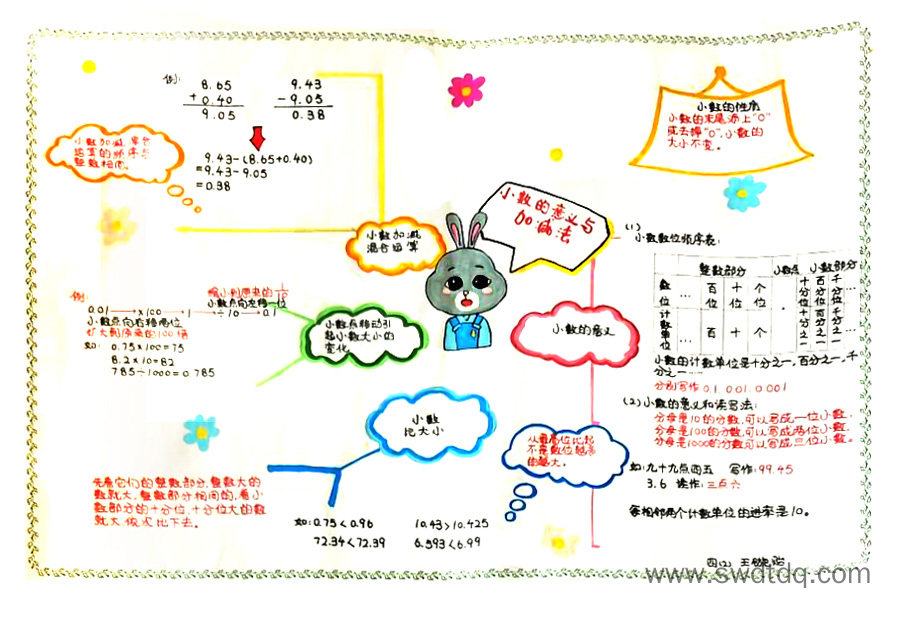 小数的意义与
加减法
例:
8.65
+ 0.40
9.05
9.43
- 9.05
0.38
9.43-(8.65+0.40)
=9.43-9.05
=0.38
小数加减,混合
运算的顺序与
整数相同。
小数加减
混合运算
小数的性质
小数的末尾添上"0"
或去掉"0",小数的
大小不变。
(1)
小数数位顺序表:
整数部分 小数点 小数部分
数位 … 百位 十位 个位 · 十分位 百分位 千分位 …
计数单位 … 百 十 个 十分之一 百分之一 千分之一 …
小数的计数单位是十分之一,百分之一,千
分之一…
分别写作 0.1 0.01 0.001
(2)小数的意义和读写法:
分母是10的分数,可以写成一位小数,
分母是100的分数,可以写成两位小数,
分母是1000的分数可以写成三位小数。
如:九十九点四五 写作:99.45
3.6 读作:三点六
每相邻两个计数单位的进率是10。
小数的意义
小数点移动引
起小数大小的
变化
缩小到原来的1/10
小数点向左移一位
例:
0.01 ×100 1 ÷10 0.1
小数点向右移两位
扩大到原来的100倍
如: 0.75×100=75
8.2×10=82
785÷1000=0.785
小数
比大小
从最高位比起
不是数位越多
就越大。
先看它们的整数部分,整数大的
数就大,整数部分相同的,看小
数部分的十分位,十分位大的数
就大,依次比下去。
如:0.75<0.96 10.43>10.425
72.34<72.39 6.593<6.99
四(2) 王
www.swdtdq.com